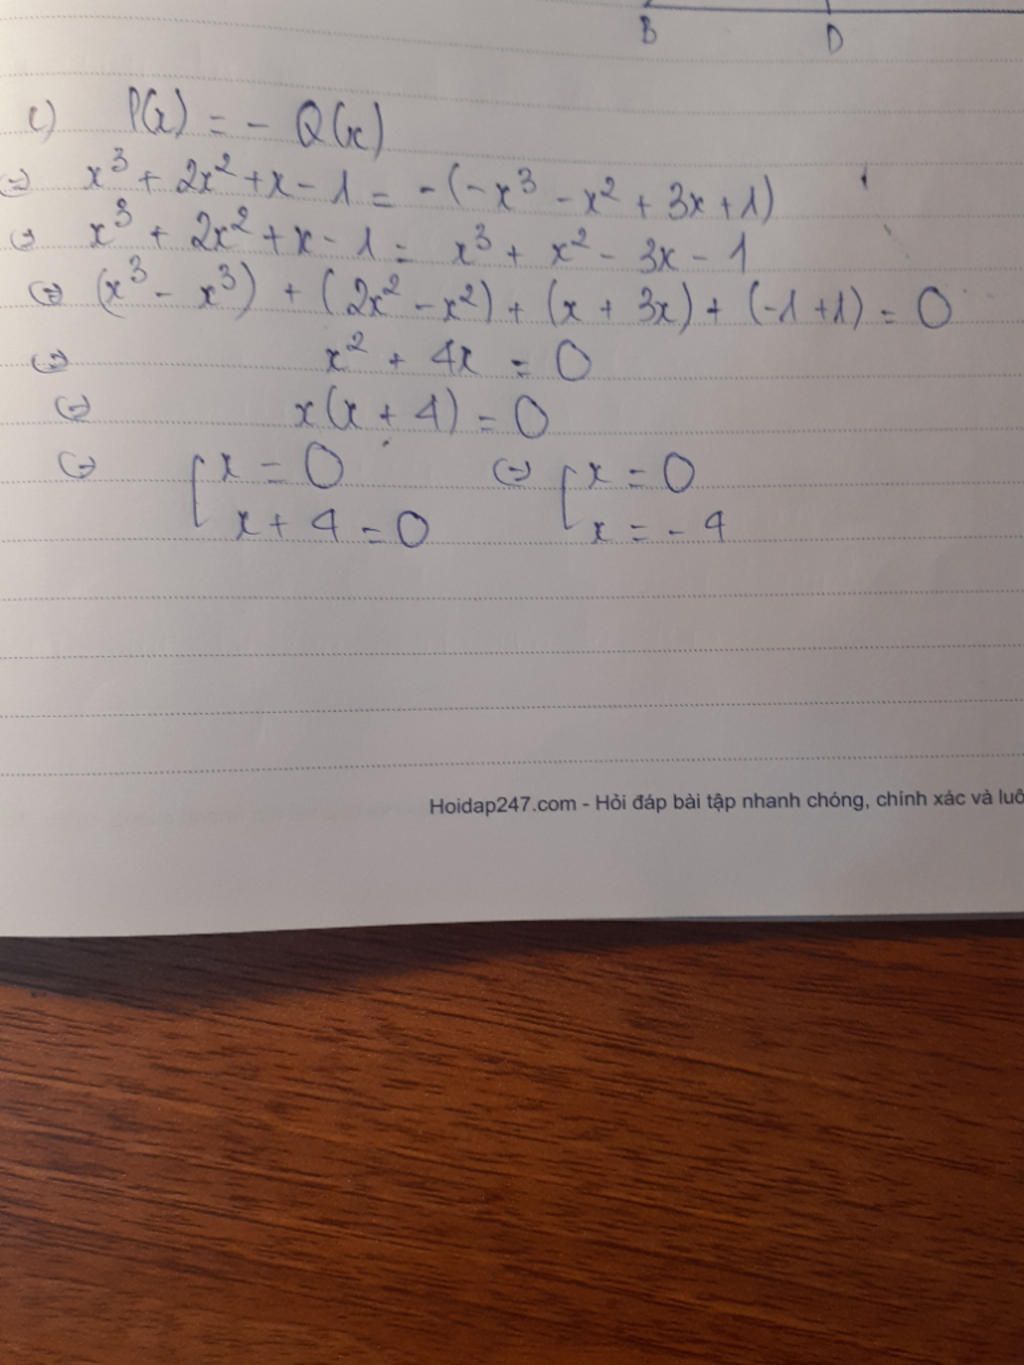 B D
c) P(x) = - Q(x)
=) x³ + 2x² + x - 1 = -(-x³ - x² + 3x + 1)
(=) x³ + 2x² + x - 1 = x³ + x² - 3x - 1
(=) (x³ - x³) + (2x² - x²) + (x + 3x) + (-1 + 1) = 0
(=) x² + 4x = 0
(=) x(x + 4) = 0
(=) [ x = 0 (=) [ x = 0
x + 4 = 0 x = - 4
Hoidap247.com - Hỏi đáp bài tập nhanh chóng, chính xác và luô